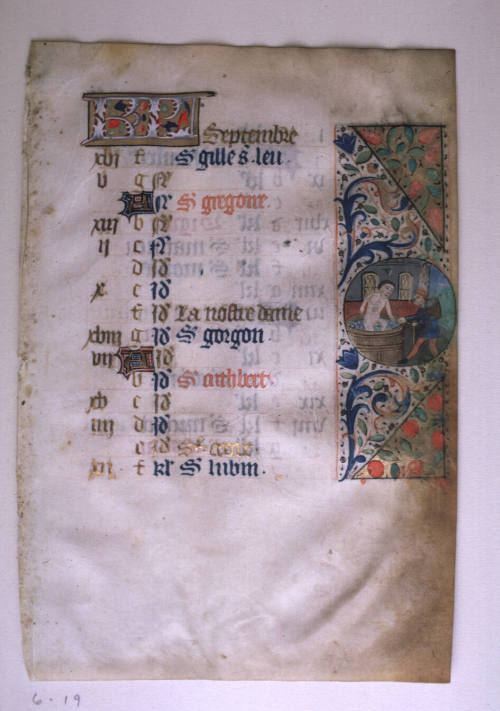 KL Septembre
xvi f S gille s. leu.
v g N
A N S gregoire.
xiii b N
ii c N
d id
x e id
f id La nostre dame
xviii g id S gorgon
vii A id
b id S cuthbert
xv c id
iiii d id
e id
f kl S lubin.
6-19